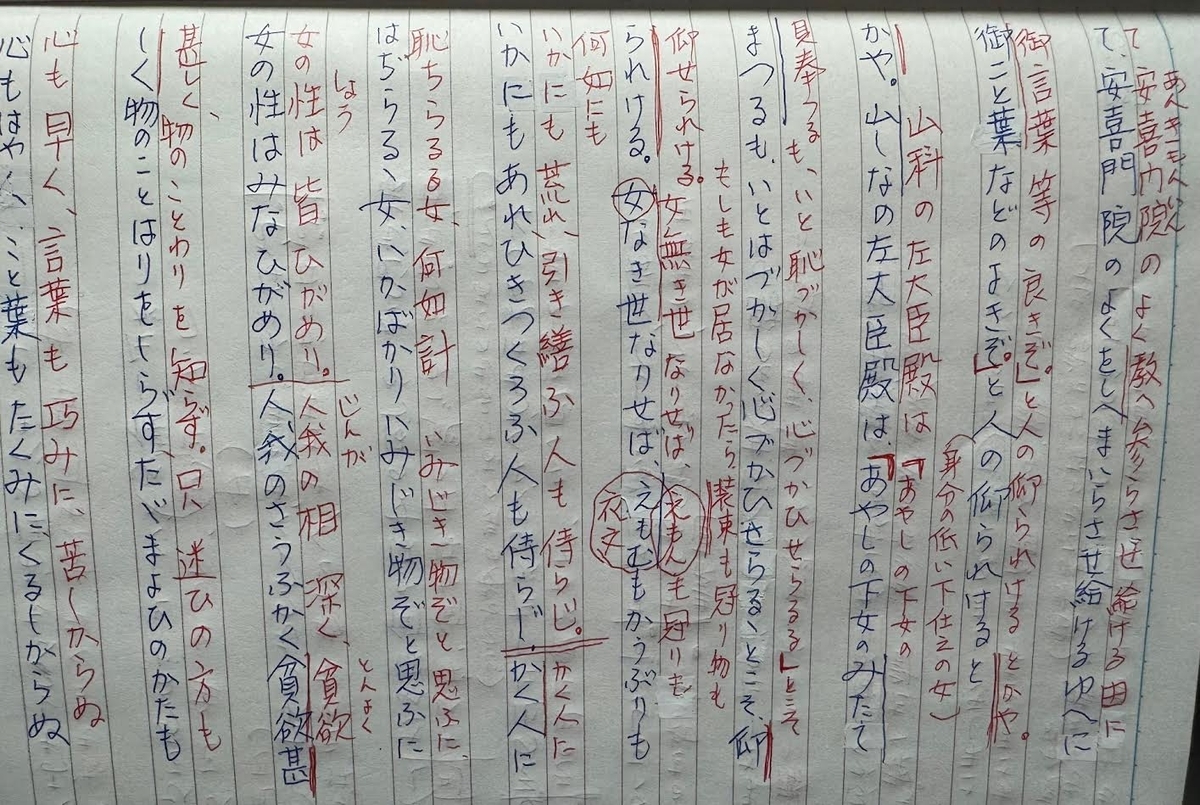 あんきもんいん
て安喜門院のよく教へ参らさせ給ける由に
て、安喜門院のよくをしへまいらさせ給けるゆへに
御言葉等の良きぞ。」と人の仰られけるとかや。
御こと葉などのよきぞ。」と人の仰られけると
山科の左大臣殿は「あやしの下女の
身分の低い下仕えの女)
かや。山しなの左大臣殿は、「あやしの下女のみたて
見奉つるも、いと恥づかしく、心づかひせらるる」とこそ
まつるも、いとはづかしく心づかひせらるゝとこそ、仰
もしも女が居なかったら、装束も冠り物も
仰せられける。女無き世なりせば、えもんも冠りも
られける。女なき世なりせば、えもむもかうぶりも
衣文
何如にも
いかにも荒れ、引き繕ふ人も侍らじ。かく人に
いかにもあれひきつくろふ人も侍らじ。かく人に
恥ちらるる女、何如計いみじき物ぞと思ふに、
はぢらるゝ女、いかばかりいみじき物ぞと思ふに
しょう
女の性は皆ひがめり。人我の相深く、貪欲
じんが
とんよく
女の性はみなひがめり。人我のさうふかく貪欲甚
甚しく、物のことわりを知らず。只迷ひの方も
しく物のことはりをしらず、たゞまよひのかたも
心も早く、言葉も巧みに、苦しからぬ
心もはやく、こと葉もたくみに、くるしからぬ